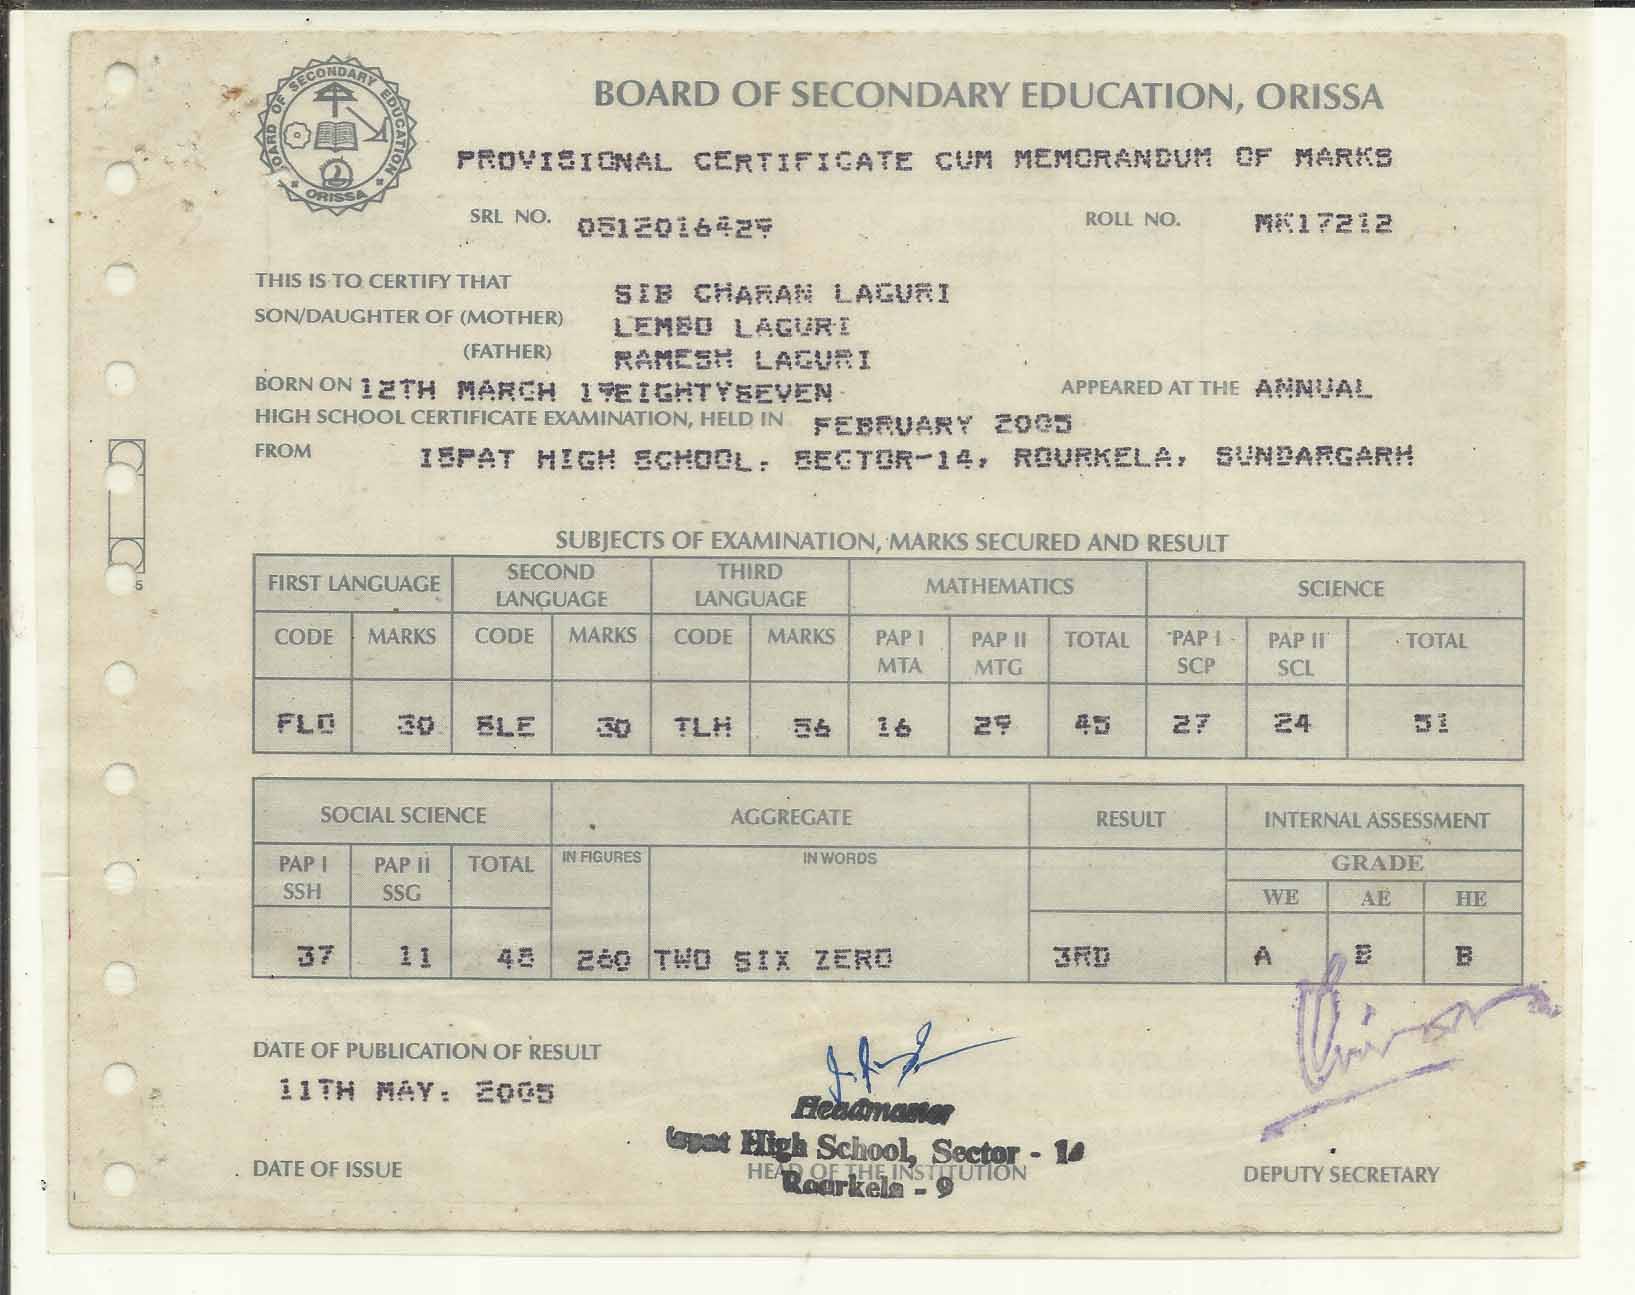 BOARD OF SECONDARY EDUCATION
ORISSA
BOARD OF SECONDARY EDUCATION, ORISSA
PROVISIONAL CERTIFICATE CUM MEMORANDUM OF MARKS
SRL NO. 0512016429 ROLL NO. MK17212
THIS IS TO CERTIFY THAT SIB CHARAN LAGURI
SON/DAUGHTER OF (MOTHER) LEMBO LAGURI
(FATHER) RAMESH LAGURI
BORN ON 12TH MARCH 19EIGHTYSEVEN APPEARED AT THE ANNUAL
HIGH SCHOOL CERTIFICATE EXAMINATION, HELD IN FEBRUARY 2005
FROM ISPAT HIGH SCHOOL, SECTOR-14, ROURKELA, SUNDARGARH
SUBJECTS OF EXAMINATION, MARKS SECURED AND RESULT
FIRST LANGUAGE SECOND LANGUAGE THIRD LANGUAGE MATHEMATICS SCIENCE
CODE MARKS CODE MARKS CODE MARKS PAP I MTA PAP II MTG TOTAL PAP I SCP PAP II SCL TOTAL
FLO 30 SLE 30 TLH 56 16 29 45 27 24 51
SOCIAL SCIENCE AGGREGATE RESULT INTERNAL ASSESSMENT
PAP I SSH PAP II SSG TOTAL IN FIGURES IN WORDS GRADE
WE AE HE
37 11 48 260 TWO SIX ZERO 3RD A B B
DATE OF PUBLICATION OF RESULT
11TH MAY, 2005
Headmaster
Ispat High School, Sector - 14
Rourkela - 9
DATE OF ISSUE HEAD OF THE INSTITUTION DEPUTY SECRETARY